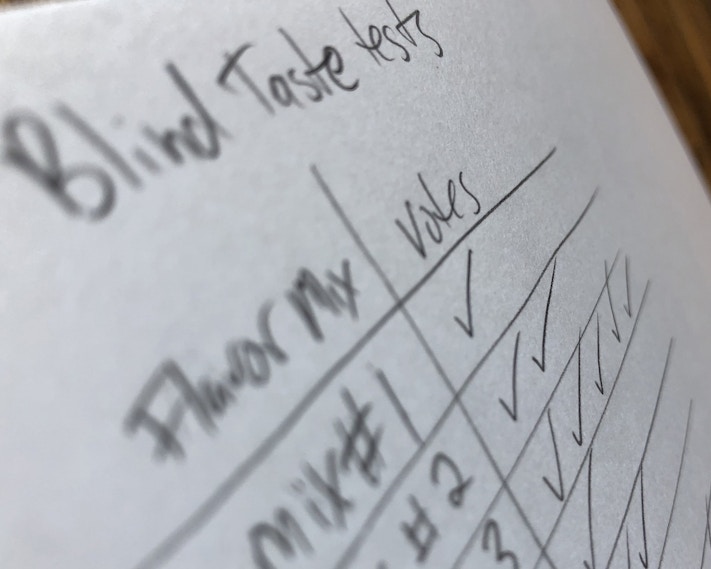 Blind Taste tests
Flavor Mix votes
Mix #1 ✓
#2 ✓✓
3 ✓✓✓✓✓